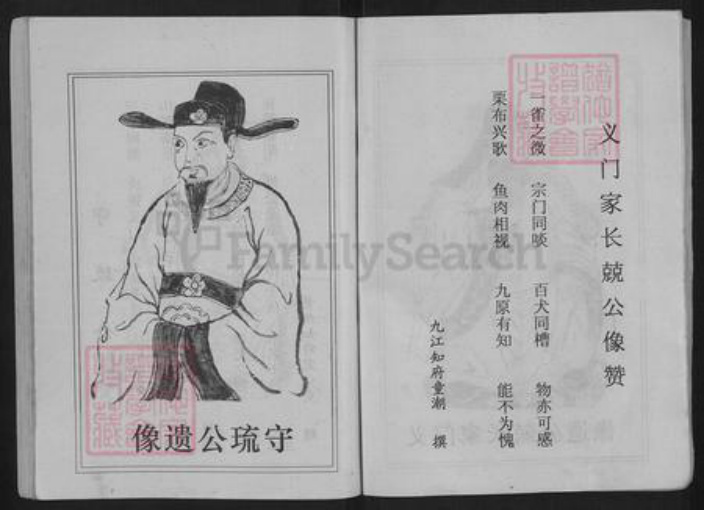 义门家长兢公像赞
一雀之微 宗门同啖 百犬同槽 物亦可感
栗布兴歌 鱼肉相视 九原有知 能不为愧
九江知府童潮 撰
像遗公琉守
FamilySearch